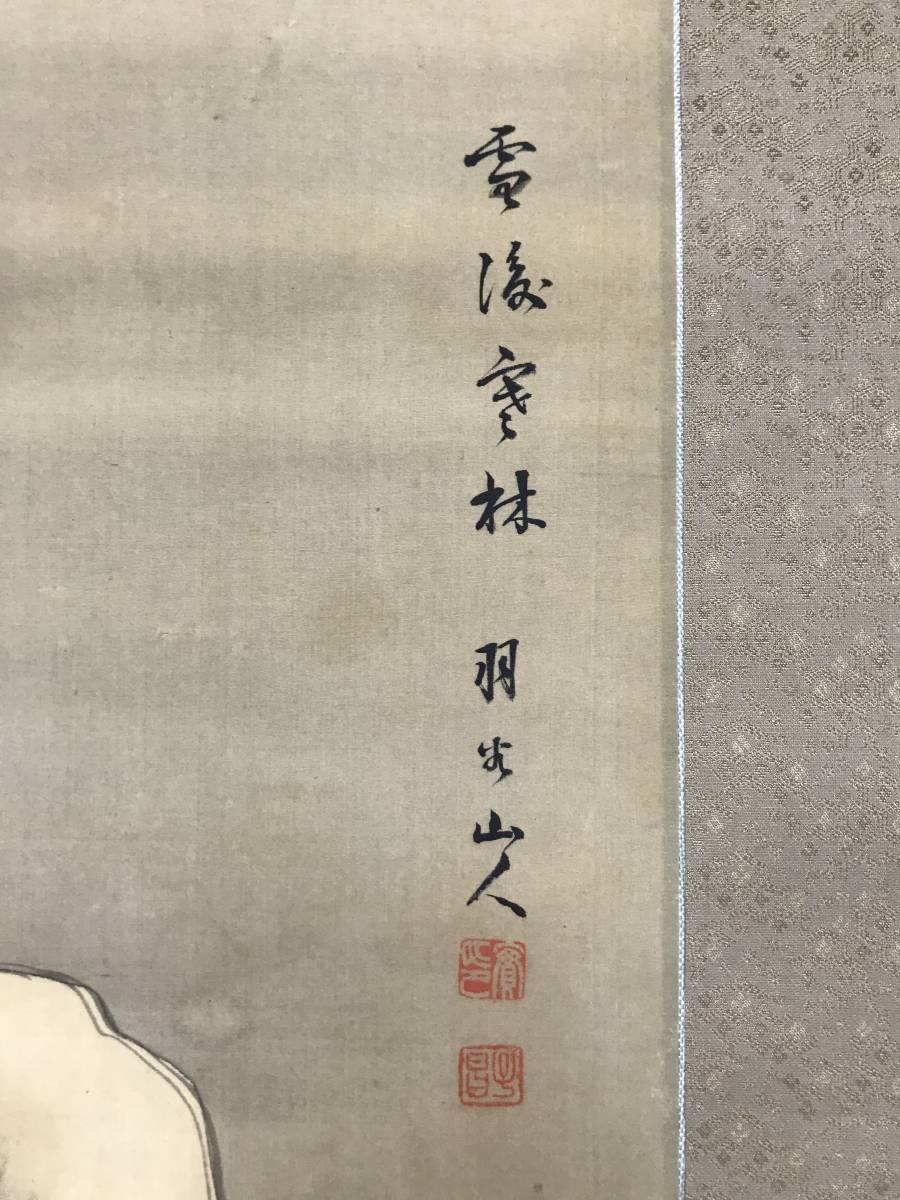 雪後寒林 羽谷山人